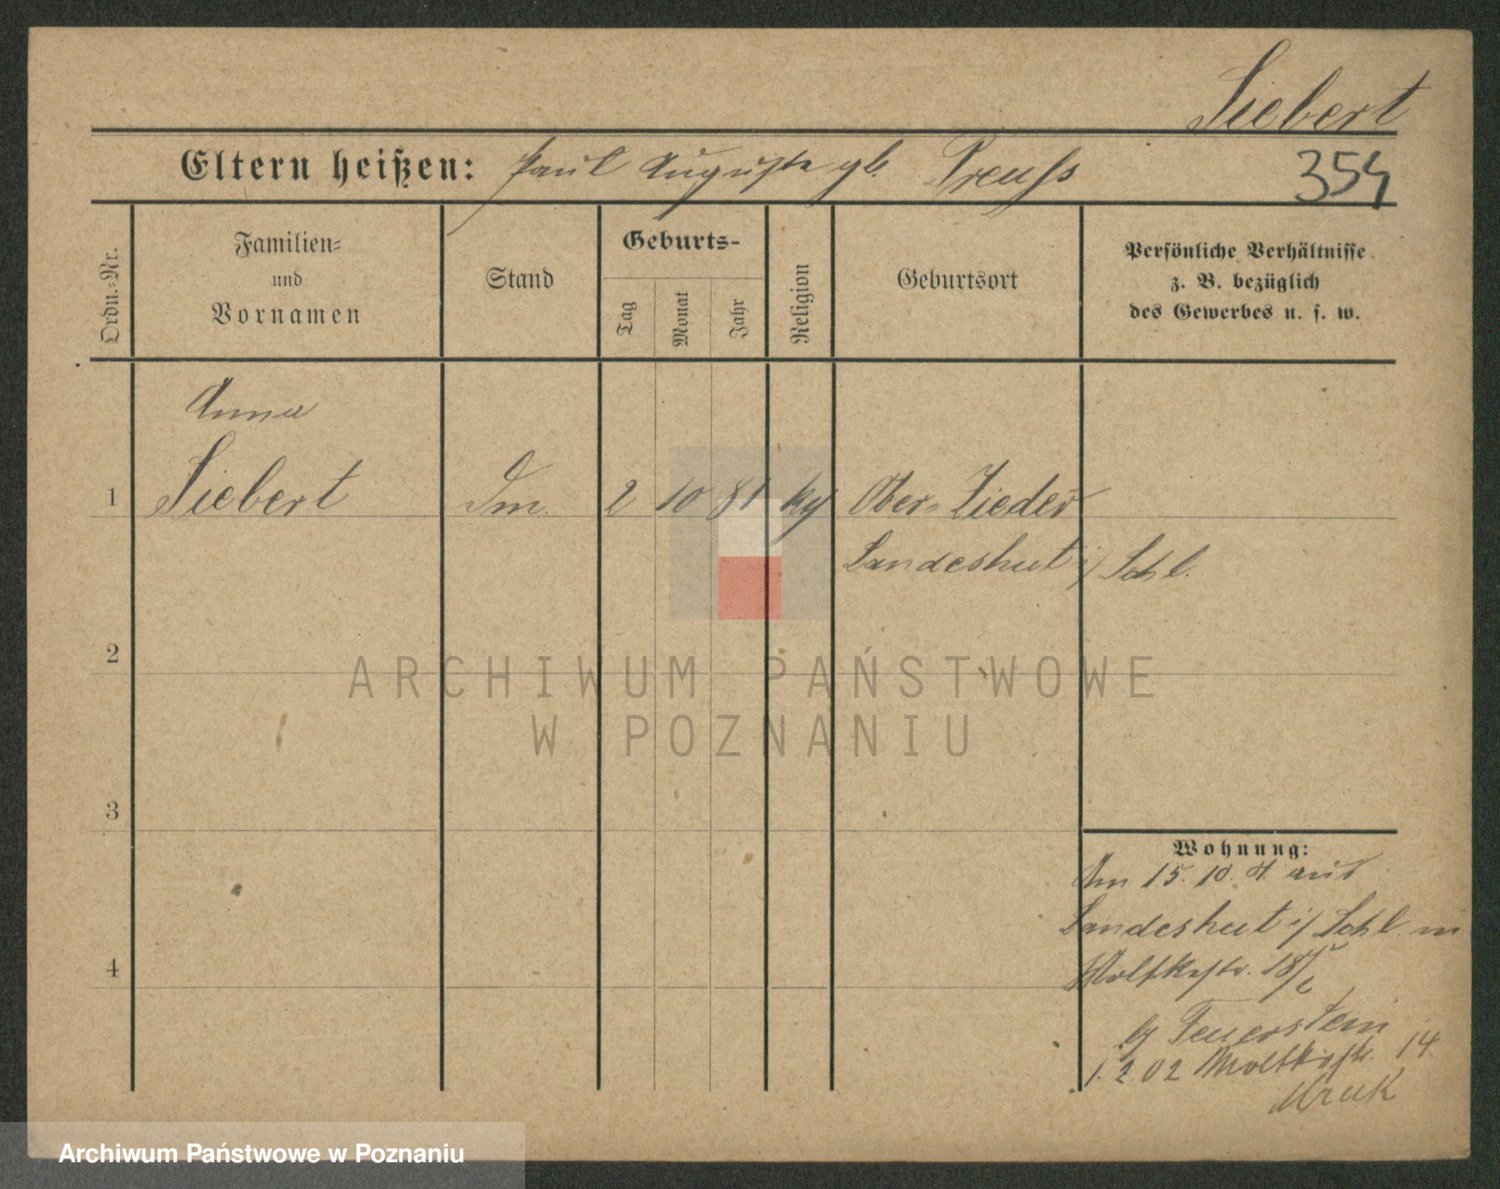 Siebert
Eltern heißen: Paul Auguste gb. Preuß
354
Ordn.-Nr.
Familien-
und
Vornamen
Stand
Geburts-
Tag
Monat
Jahr
Religion
Geburtsort
Persönliche Verhältnisse
z. B. bezüglich
des Gewerbes u. s. w.
Anna
1 Siebert Dm. 2 10 81 Ober-Zieder
Landeshut i/ Schl.
2
3
4
Wohnung:
Am 15. 10. 01. aus
Landeshut i/ Schl. in
Moltkestr. 18/
b/ Feuerstein
1. 2 02 Moltkestr. 14
Mruk
ARCHIWUM PAŃSTWOWE
W POZNANIU
Archiwum Państwowe w Poznaniu